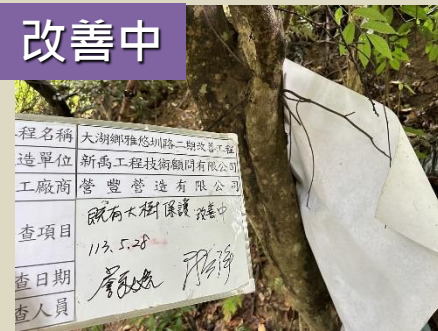 改善中
程名稱 大湖鄉雅悠圳路二期改善工程
造單位 新禹工程技術顧問有限公司
工廠商 營豐營造有限公司
查項目 既有大樹保護 改善中
113.5.28
查日期
查人員